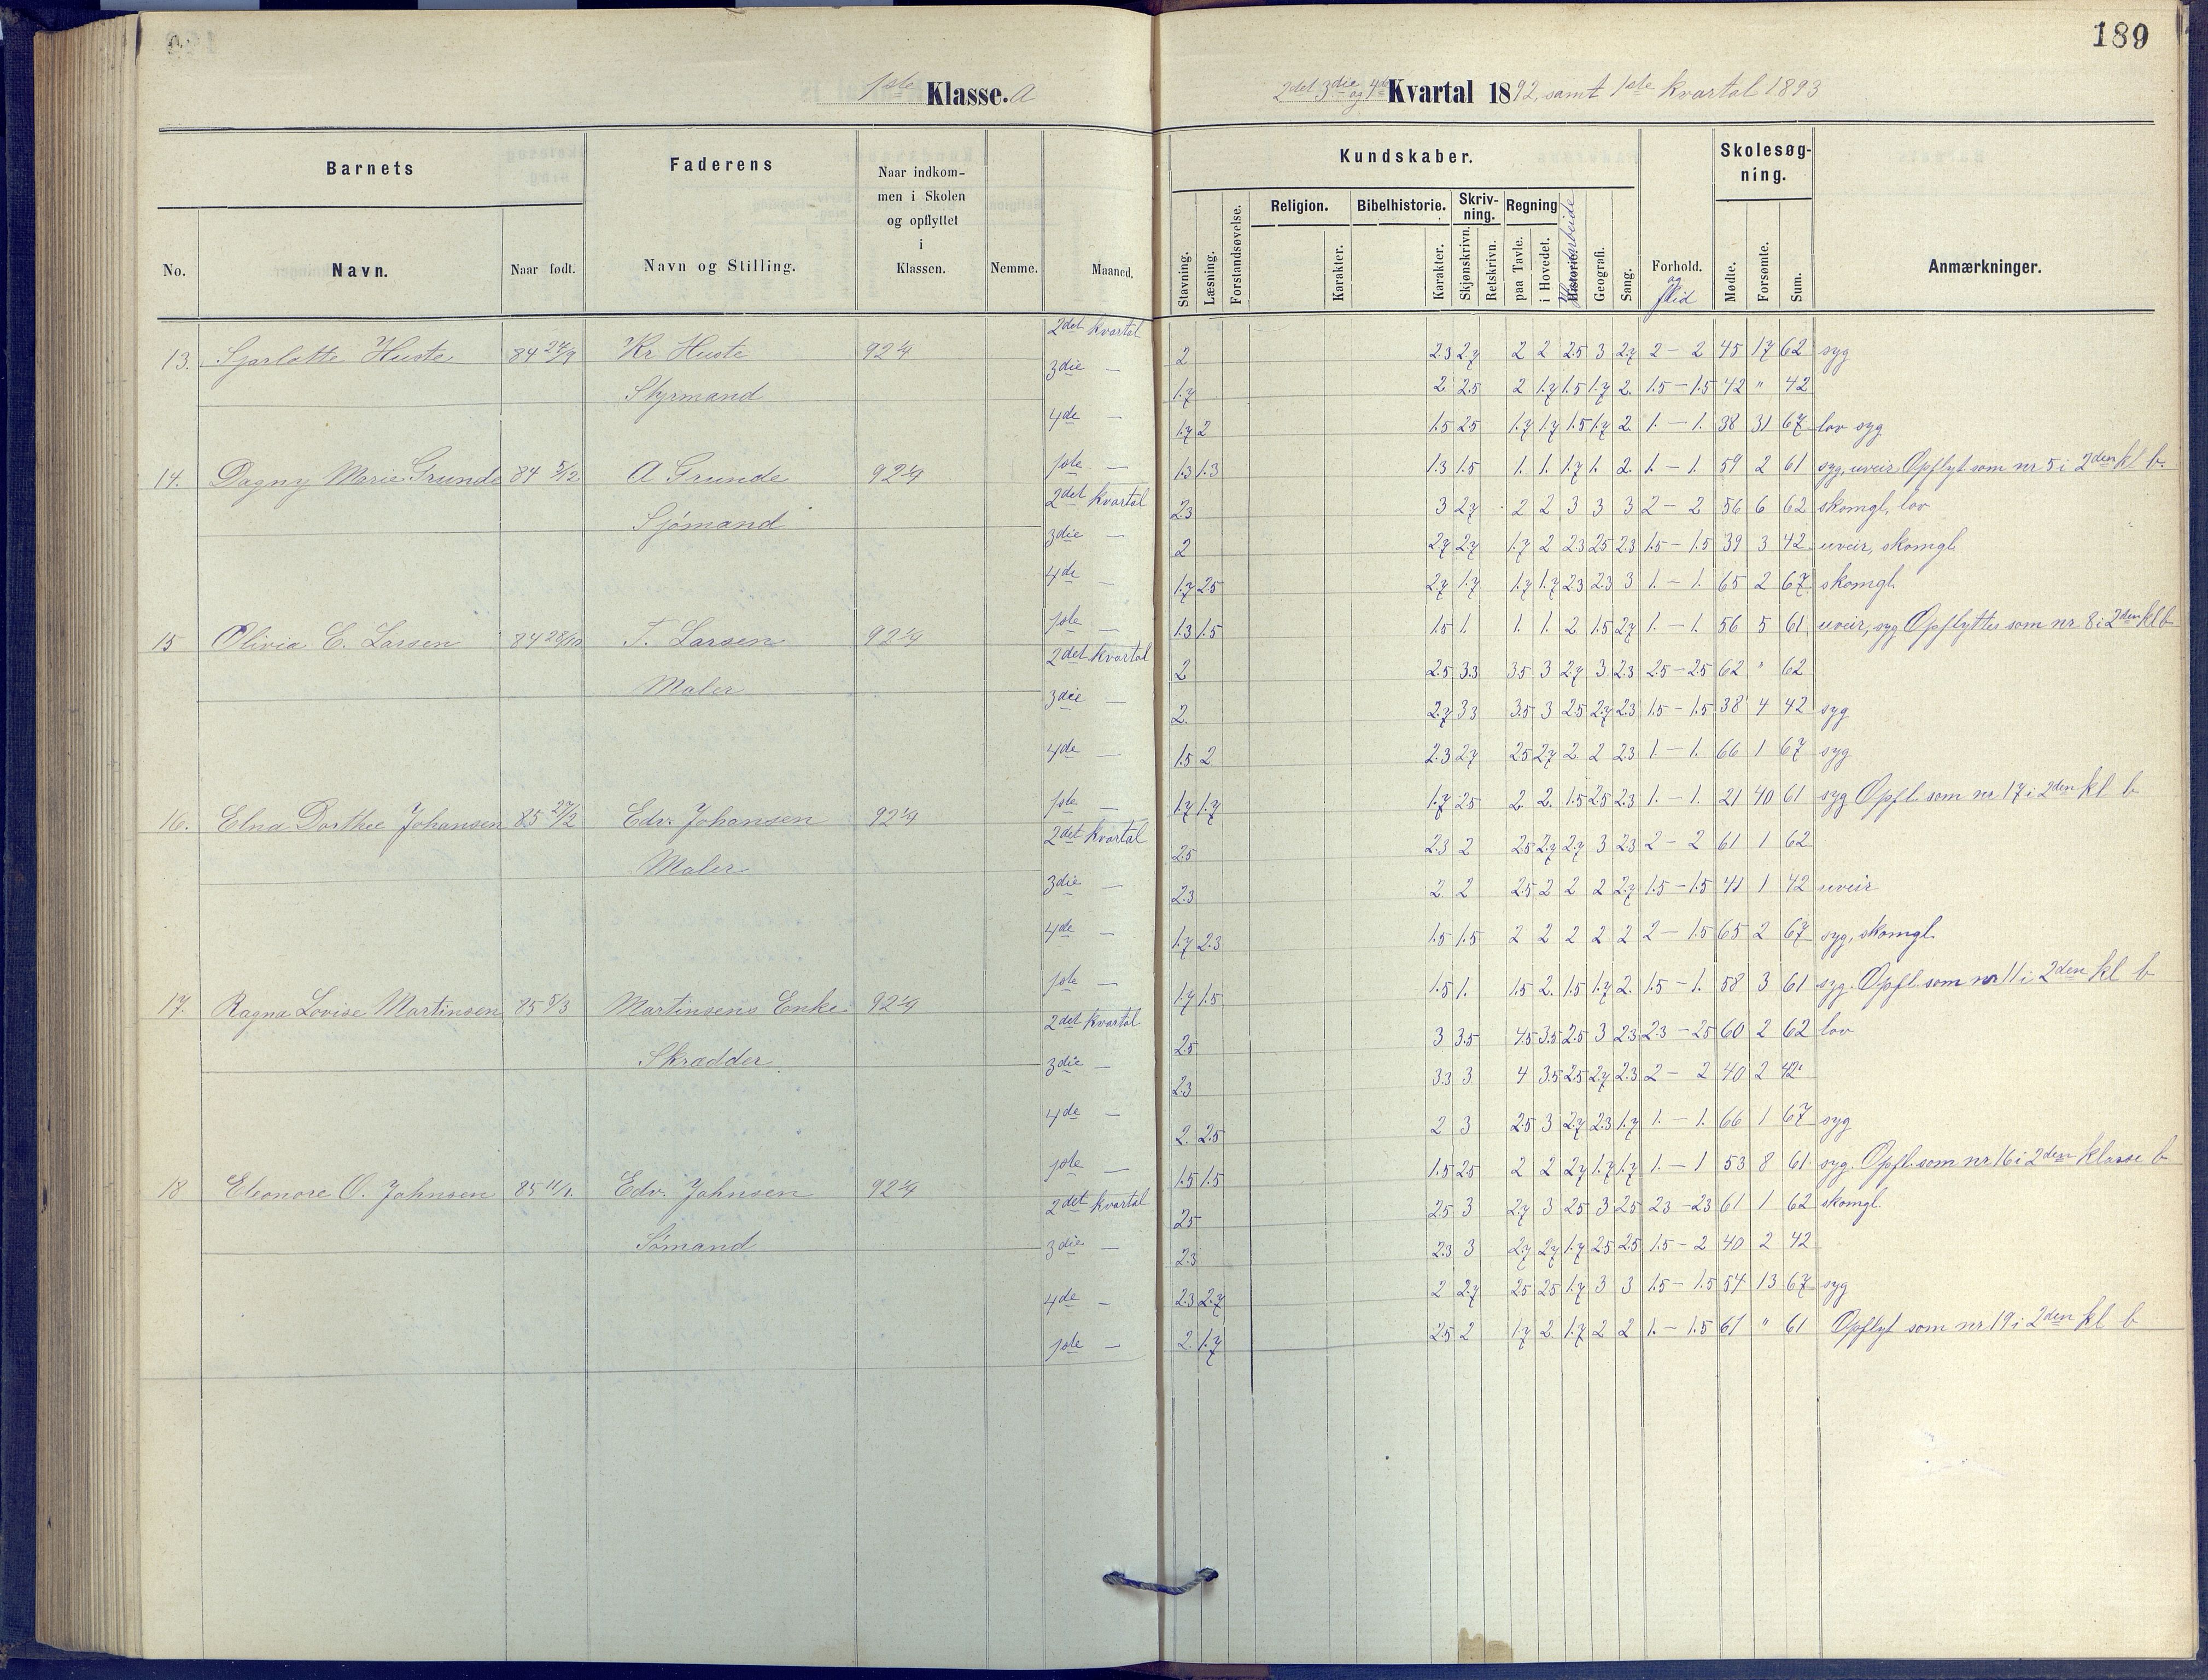 189
1ste Klasse. A
2det 3die og 4de Kvartal 1892, samt 1ste kvartal 1893
Barnets
Faderens
Naar indkommen i Skolen og opflyttet i Klassen.
Nemme.
Maaned.
Kundskaber.
Skolesøgning.
Anmærkninger.
No. Navn. Naar født. Navn og Stilling.
Stavning. Læsning. Forstandsøvelse. Religion. Karakter. Bibelhistorie. Karakter. Skrivning. Skjønskrivn. Retskrivn. Regning paa Tavle. i Hovedet. Historie. Haandarbeide Geografi. Sang. Forhold. og flid Mødte. Forsømte. Sum.
13. Sjarlotte Huste 84 24/9 Kr Huste 92 1/4 2det kvartal 2 2.3 2.7 2 2 2.5 3 2.7 2 - 2 45 17 62 syg
Styrmand 3die — 1.7 2 2.5 2 1.7 1.5 1.7 2. 1.5 - 1.5 42 " 42
4de — 1.7 2 1.5 2.5 1.7 1.7 1.5 1.7 2. 1. - 1. 38 31 67 lov syg
1ste — 1.3 1.3 1.3 1.5 1. 1. 1.7 1. 2. 1. - 1. 59 2 61 syg, uveir Opflyt som nr 5 i 2den kl b.
14. Dagny Marie Grunde 84 5/12 A Grunde 92 1/4 2det kvartal 2.3 3 2.7 2 2 3 3 3 2 - 2 56 6 62 skomgl, lov
Sjømand 3die — 2 2.7 2.7 1.7 2 2.3 2.5 2.3 1.5 - 1.5 39 3 42 uveir, skomgl.
4de — 1.7 2.5 2.7 1.7 1.7 1.7 2.3 2.3 3 1. - 1. 65 2 67 skomgl.
1ste — 1.3 1.5 1.5 1. 1. 1. 2 1.5 2.7 1. - 1. 56 5 61 uveir, syg Opflyttes som nr 8 i 2den kl b
15 Olivia C. Larsen 84 28/10 T. Larsen 92 1/4 2det kvartal 2 2.5 3.3 3.5 3 2.7 3 2.3 2.5 - 2.5 62 " 62
Maler 3die — 2. 2.7 3.3 3.5 3 2.5 2.7 2.3 1.5 - 1.5 38 4 42 syg
4de — 1.5 2 2.3 2.7 2.5 2.7 2 2 2.3 1 - 1. 66 1 67 syg
1ste — 1.7 1.7 1.7 2.5 2. 2. 1.5 2.5 2.3 1. - 1. 21 40 61 syg Opfl. som nr 17 i 2den kl b
16. Elna Dorthee Johansen 85 27/2 Edv. Johansen 92 1/4 2det kvartal 2.5 2.3 2 2.5 2.7 2.7 3 2.3 2 - 2 61 1 62
Maler 3die — 2.3 2 2 2.5 2 2 2 2.7 1.5 - 1.5 41 1 42 uveir
4de — 1.7 2.3 1.5 1.5 2 2 2 2 2 2 - 1.5 65 2 67 syg, skomgl.
1ste — 1.7 1.5 1.5 1. 1.5 2. 1.5 1.7 2. 1.5 - 1. 58 3 61 syg. Opfl. som nr 11 i 2den kl b
17. Ragna Lovise Martinsen 85 5/3 Martinsens Enke 92 1/4 2det kvartal 2.5 3 3.5 4.5 3.5 2.5 3 2.3 2.3 - 2.5 60 2 62 lov
Skrædder 3die — 2.3 3.3 3 4 3.5 2.5 2.7 2.3 2 - 2 40 2 42
4de — 2. 2.5 2 3 2.5 3 2.7 2.3 1.7 1. - 1. 66 1 67 syg
1ste — 1.5 1.5 1.5 2.5 2 2 2.7 1.7 1.7 1. - 1 53 8 61 syg. Opfl. som nr 16 i 2den klasse b
18 Eleonore O. Johnsen 85 11/1. Edv. Johnsen 92 1/4 2det kvartal 2.5 2.5 3 2.7 3 2.5 3 2.5 2.3 - 2.3 61 1 62 skomgl.
Sømand 3die — 2.3 2.3 3 2.7 2.7 1.7 2.5 2.5 1.5 - 2 40 2 42
4de — 2.3 2.7 2 2.7 2.5 2.5 1.7 3 3 1.5 - 1.5 54 13 67 syg
1ste — 2. 1.7 2.5 2 1.7 2. 1.7 2 2 1. - 1.5 61 " 61 Opflyt som nr 19 i 2den kl b